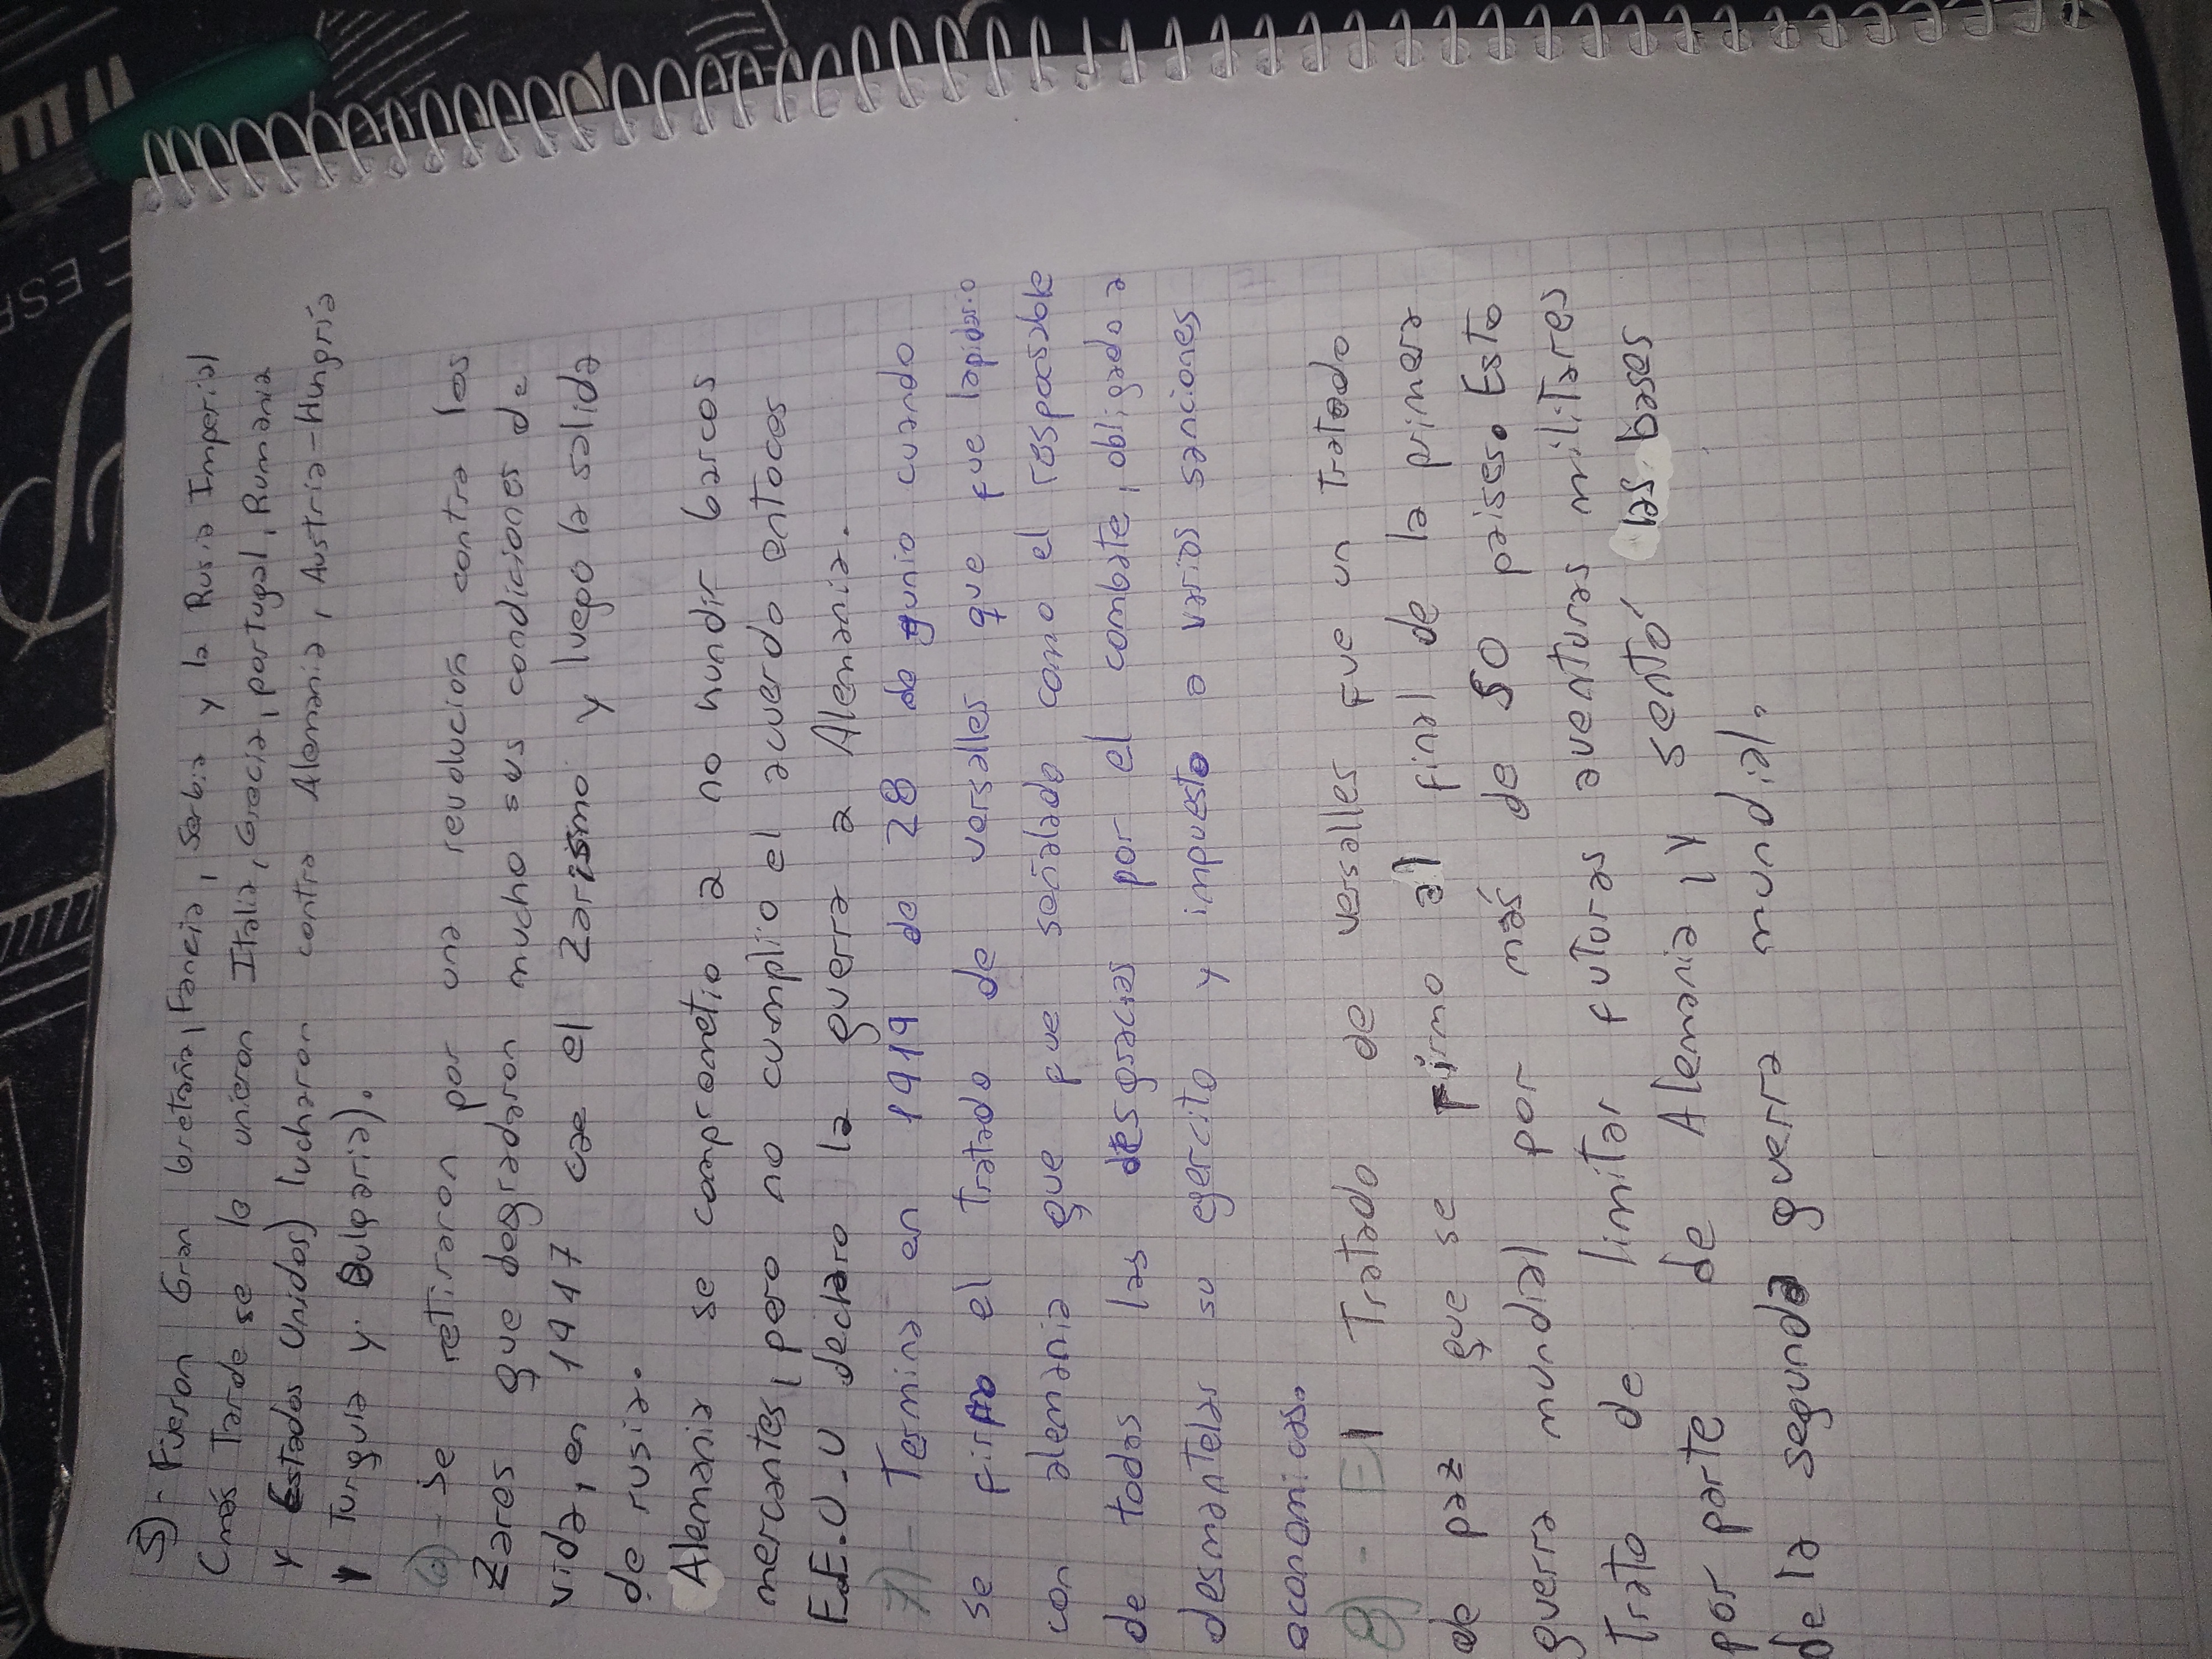 5)- Fueron Gran bretaña, Fancia, Serbia y la Rusia Imperial
(más Tarde se le unieron Italia, Grecia, portugal, Rumania
y Estados Unidos) lucharon contra Alemania, Austria-Hungria
y Turquia y Bulgaria).
6)- Se retiraron por una revolución contra los
Zares que degradaron mucho sus condiciones de
vida, en 1917 cae el Zarismo y luego la salida
de rusia.
Alemania se comprometio a no hundir barcos
mercantes, pero no cumplio el acuerdo entoces
E.E.U.U declaro la guerra a Alemania.
7)- Termina en 1919 de 28 de gunio cuando
se firmo el Tratado de versalles que fue lapidario
con alemania que fue señalado como el resposable
de todas las desgracias por el combate, obligado a
desmantelar su egercito y impuesto a varias sanciones
economicas.
8)- El Tratado de versalles Fue un Tratado
de paz que se Firmo al final de la primera
guerra mundial por más de 50 paises. Esto
Trato de limitar futuras aventuras militares
por parte de Alemania, y sentó las bases
de la segunda guerra mundial.
ESP